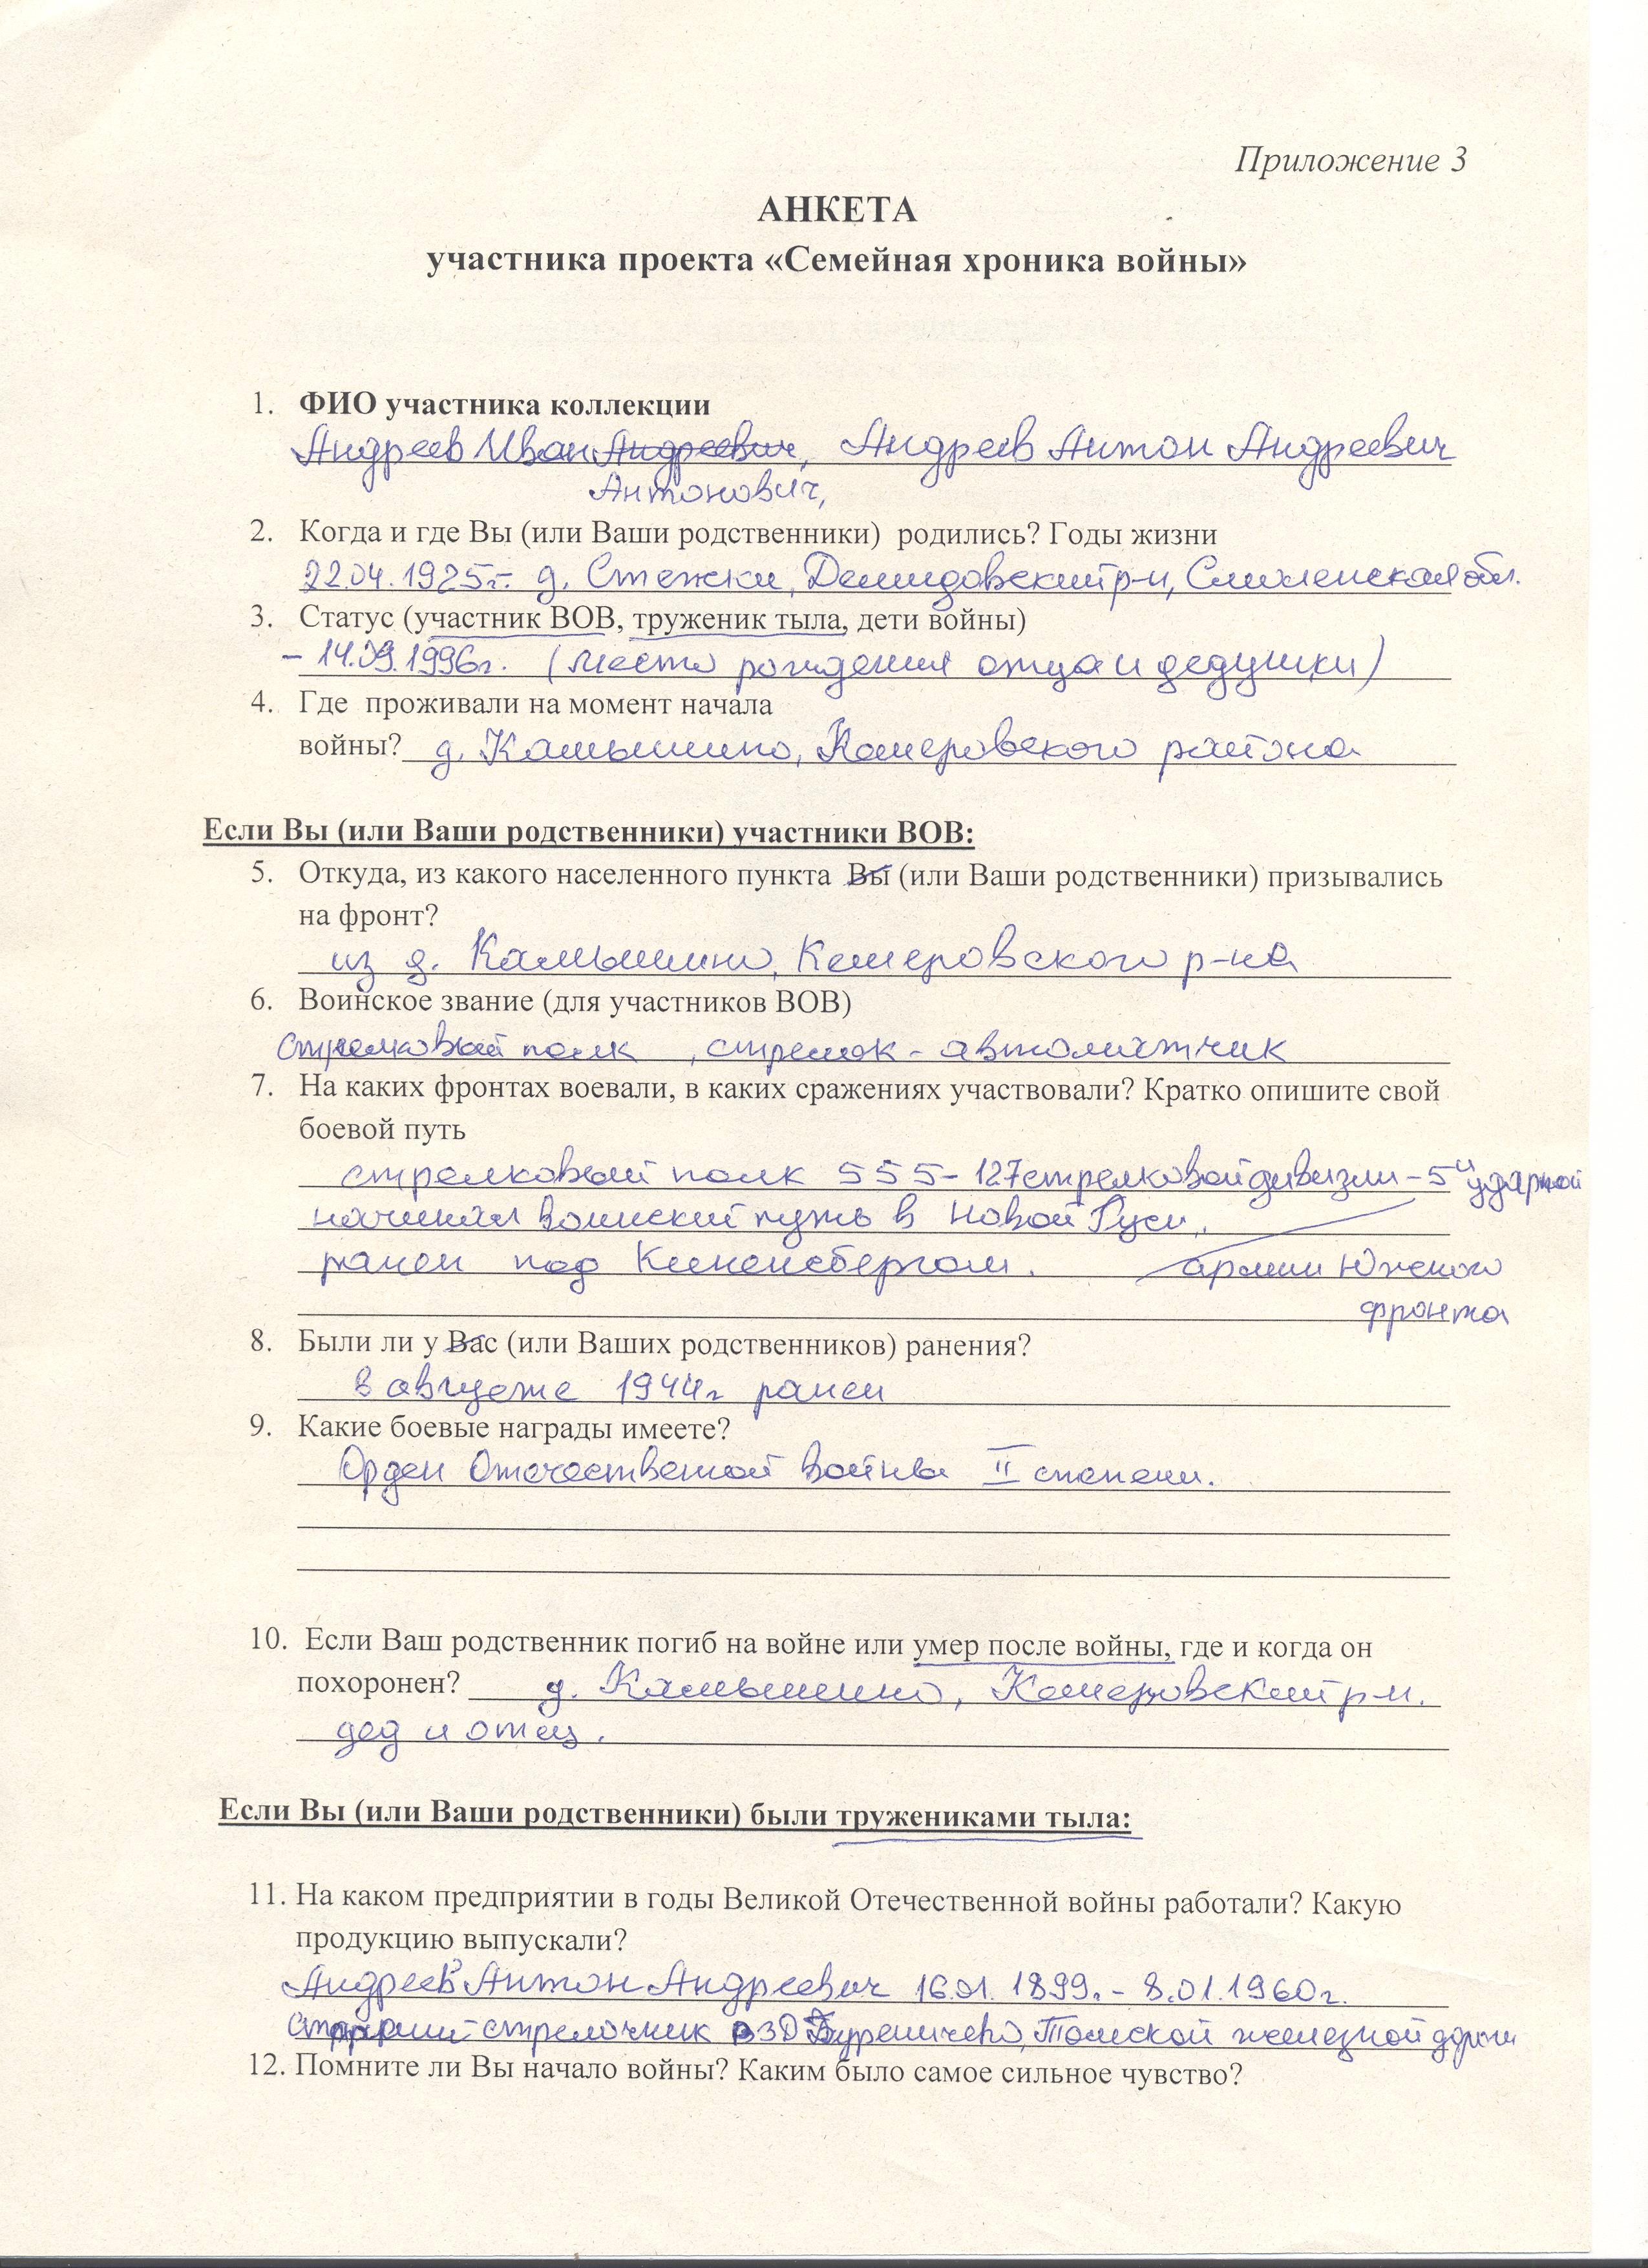 Приложение 3
АНКЕТА
участника проекта «Семейная хроника войны»
1. ФИО участника коллекции
Андреев Иван Андреевич, Андреев Антон Андреевич
Антонович,
2. Когда и где Вы (или Ваши родственники) родились? Годы жизни
22.04.1925г. д. Стежки, Демидовский р-н, Смоленская обл.
3. Статус (участник ВОВ, труженик тыла, дети войны)
– 14.09.1996г. (место рождения отца и дедушки)
4. Где проживали на момент начала
войны? д. Камышино, Кемеровского района
Если Вы (или Ваши родственники) участники ВОВ:
5. Откуда, из какого населенного пункта Вы (или Ваши родственники) призывались
на фронт?
из д. Камышино, Кемеровского р-на
6. Воинское звание (для участников ВОВ)
Стрелковый полк , стрелок - автоматчик
7. На каких фронтах воевали, в каких сражениях участвовали? Кратко опишите свой
боевой путь
стрелковый полк 555 - 127 стрелковой дивизии - 5й ударной
начинал воинский путь в Новой Руси,
ранен под Кененсбергом. армии Южного
фронта
8. Были ли у Вас (или Ваших родственников) ранения?
в августе 1944г ранен
9. Какие боевые награды имеете?
Орден Отечественной войны II степени.
10. Если Ваш родственник погиб на войне или умер после войны, где и когда он
похоронен? д. Камышино, Кемеровский р-н.
дед и отец.
Если Вы (или Ваши родственники) были тружениками тыла:
11. На каком предприятии в годы Великой Отечественной войны работали? Какую
продукцию выпускали?
Андреев Антон Андреевич 16.01.1899г. - 8.01.1960г.
Старший стрелочник Томской железной дороги
12. Помните ли Вы начало войны? Каким было самое сильное чувство?